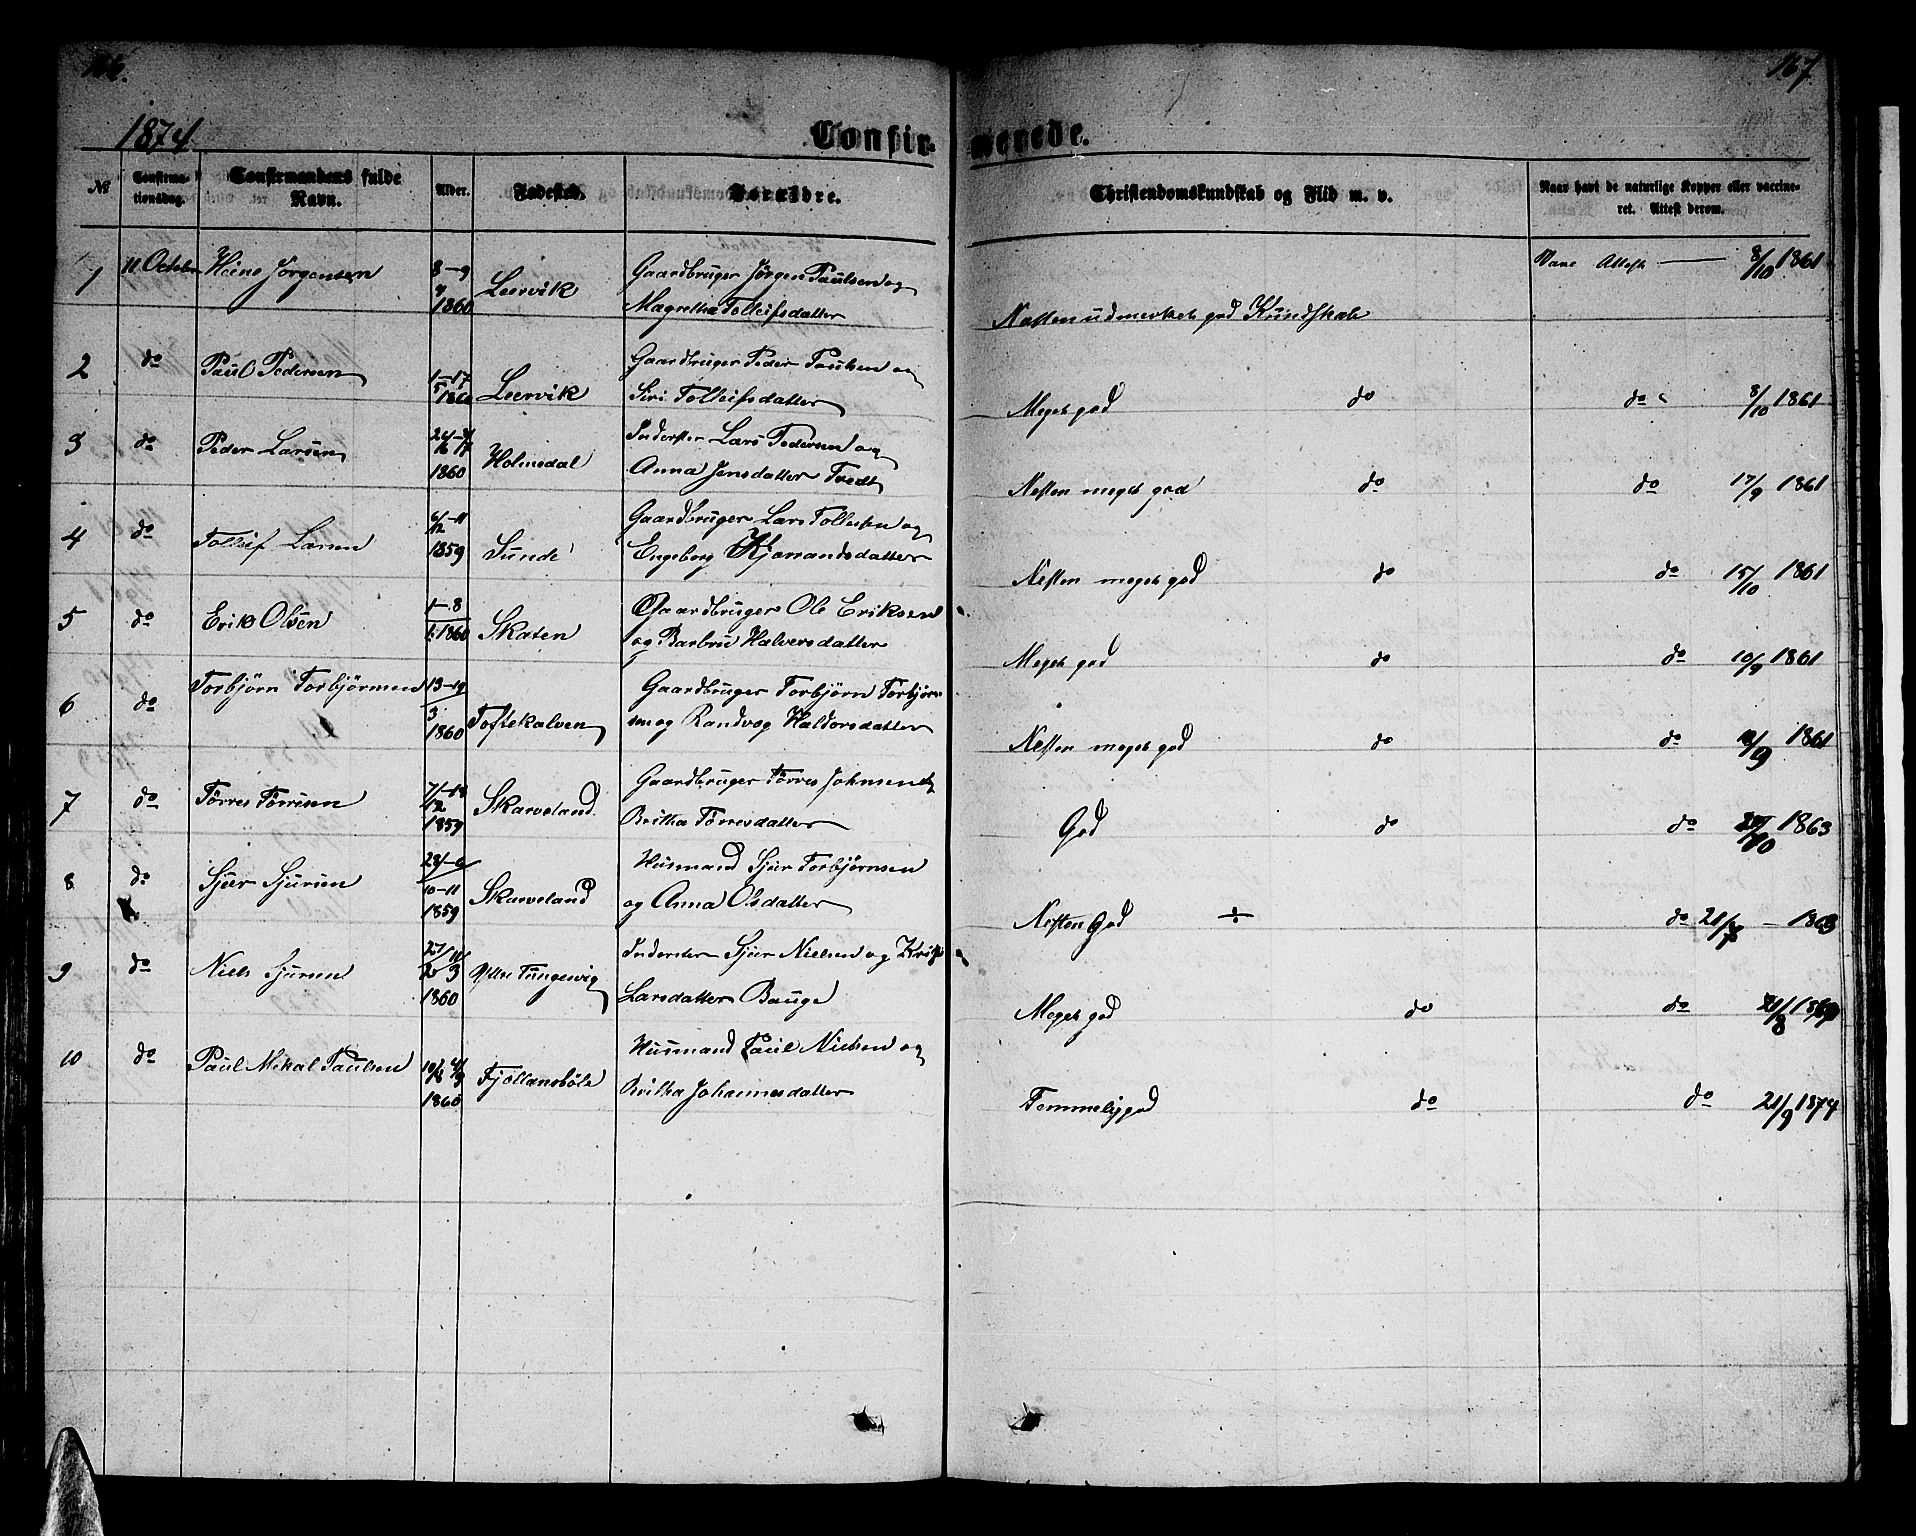 166.
167.
1874
Confirmerede.
№
Confirmationsdag.
Confirmandens fulde Navn.
Alder.
Fødested.
Forældre.
Christendomskundskab og Flid m. v.
Naar havt de naturlige Kopper eller vaccineret. Attest derom.
1 11 October Heine Jørgensen 8-9 1860 Leervik Gaardbruger Jørgen Paulsen og
Magretha Tolleifsdatter Næsten udmerket god Kundskab Vacc Attest — 8/10 1861
2 do Paul Pedersen 1-17 5 1860 Leervik Gaardbruger Peder Paulsen og
Siri Tolleifsdatter Meget god do do 8/10 1861
3 do Peder Larsen 1860 Holmedal Inderster Lars Pedersen og
Anna Jensdatter Tredt Nesten meget god do do 17/9 1861
4 do Tolleif Larsen 6/12-11 1859 Sunde Gaardbruger Lars Tolleifsen og
Engeborg Kjonandsdatter Nesten meget god do do 15/10 1861
5 do Erik Olsen 1-8 1860 Skaten Gaardbruger Ole Eriksen
og Barbru Halversdatter Meget god do do 10/9 1861
6 do Torbjörn Torbjörnsen 13-19 3 1860 Toftekalven Gaardbruger Torbjörn Torbjörn
sen og Randvog Haldorsdatter Nesten meget god do do 1861
7 do Törres Törrisen 12 1859 Skarveland Gaardbruger Törres Johnsen og
Britha Törresdatter God do do 1863
8 do Sjur Sjursen 10-11 1859 Skarveland Husmand Sjur Torbjørnsen
og Anna Olsdatter Nesten God ÷ do 1863
9 do Niels Sjursen 1860 Yttre Tungevig Inderster Sjur Nielsen og
Larsdatter Bauge Meget god do do
10 do Paul Mikal Paulsen 1860 Fjöllandsböle Husmand Paul Nielsen og
Britha Johannesdatter Temmelig god do do 21/9 1874